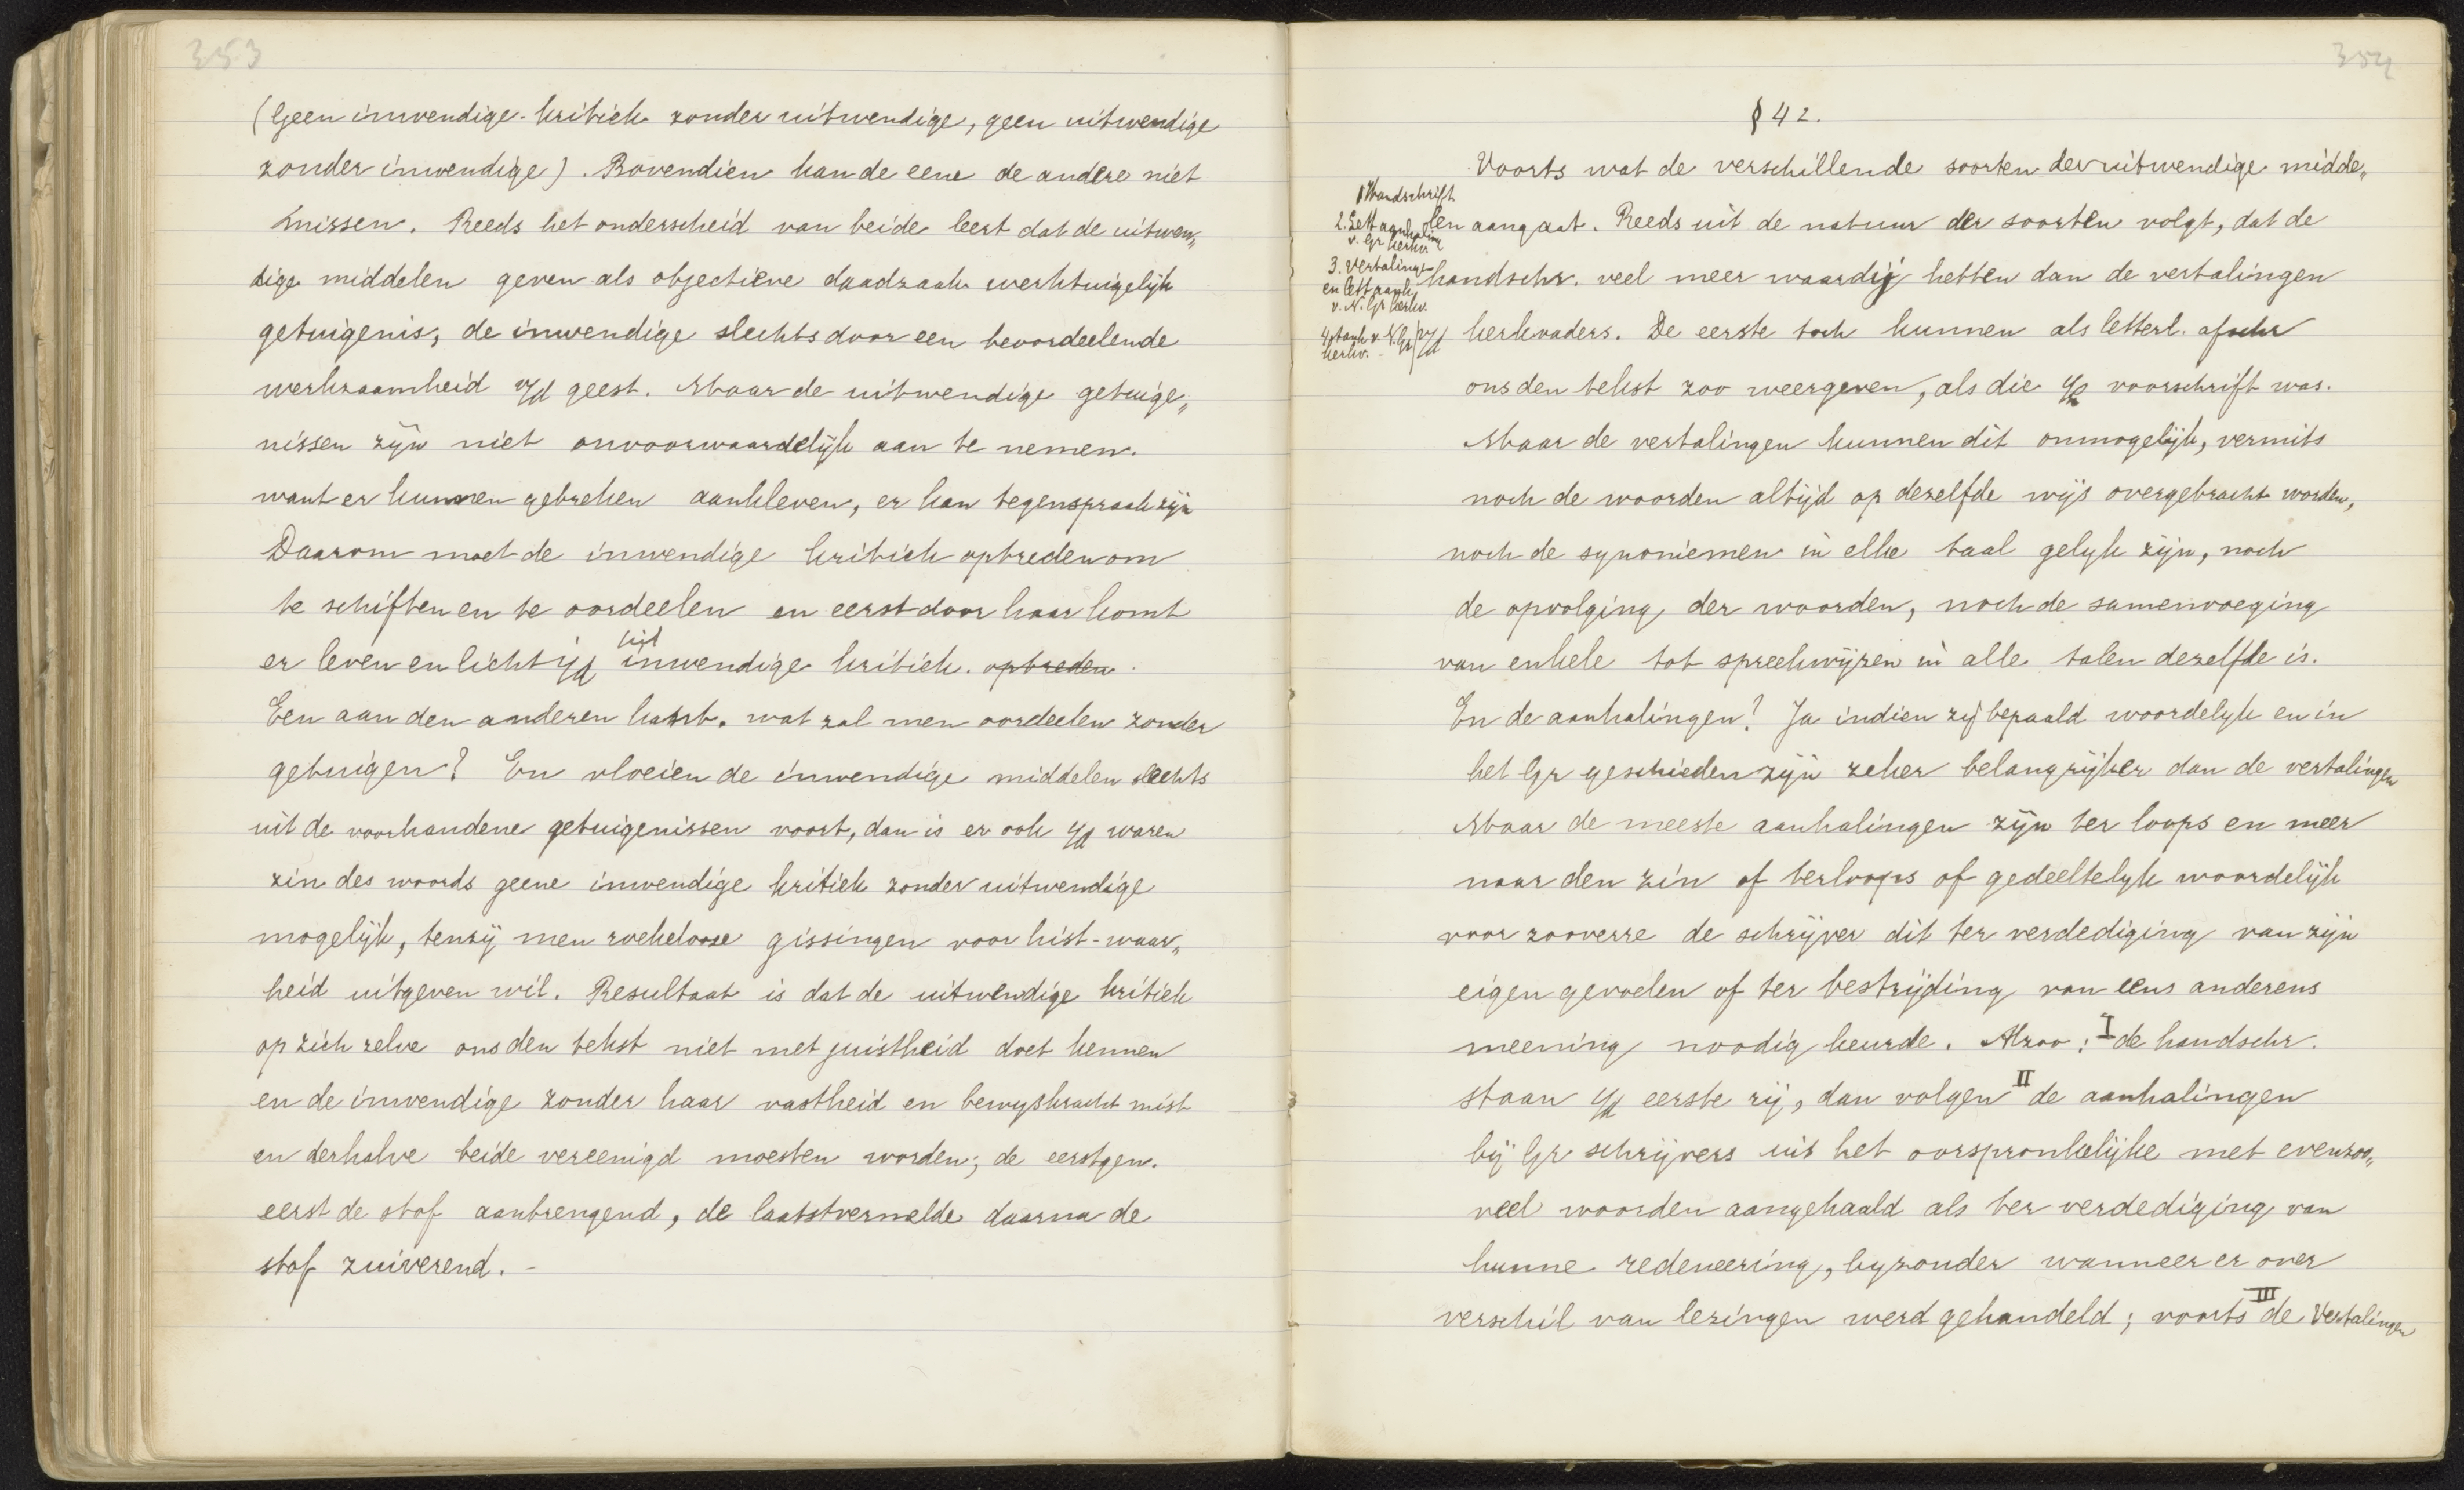 353
(Geen inwendige kritiek zonder uitwendige, geen uitwendige
zonder inwendige). Bovendien kan de eene de andere niet
missen. Reeds het onderscheid van beide leert dat de uitwen„
dige middelen geven als objectieve daadzaak werktuigelijk
getuigenis, de inwendige slechts door een beoordeelende
werkzaamheid v/d geest. Maar de uitwendige getuige„
nissen zijn niet onvoorwaardelijk aan te nemen.
want er kunnen gebreken aankleven, er kan tegenspraak zijn
Daarom moet de inwendige kritiek optreden om
te schiften en te oordeelen en eerst door haar komt
er leven en licht i/d
inwendige kritiek. optreden.
Een aan den anderen kant. wat zal men oordeelen zonder
getuigen? En vloeien de inwendige middelen slechts
uit de voorhandene getuigenissen voort, dan is er ook i/d waren
zin des woords geene inwendige kritiek zonder uitwendige
mogelijk, tenzij men roekeloose gissingen voor hist-waar„
heid uitgeven wil. Resultaat is dat de uitwendige kritiek
op zich zelve ons den tekst niet met juistheid doet kennen
en de inwendige zonder haar vastheid en bewyskracht mist
en derhalve beide vereenigd moesten worden; de eerstgen.
eerst de stof aanbrengend, de laatstvermelde daarna de
stof zuiverend. -
354
§ 42.
Voorts wat de verschillende soorten der uitwendige midde„
len aangaat. Reeds uit de natuur der soorten volgt, dat de
handschr. veel meer waardij hebben dan de vertalingen
kerkvaders. De eerste toch kunnen als letterl. afschr
ons den tekst zoo weergeven, als die voorschrift was.
Maar de vertalingen kunnen dit onmogelijk, vermits
noch de woorden altijd op dezelfde wijs overgebracht worden,
noch de synoniemen in elke taal gelyk zijn, noch
de opvolging der woorden, noch de samenvoeging
van enkele tot spreekwijzen in alle talen dezelfde is.
En de aanhalingen? Ja indien zij bepaald woordelyk en in
het Gr geschieden zijn zeker belangrijker dan de vertalingen
Maar de meeste aanhalingen zijn ter loops en meer
naar den zin of terloops of gedeeltelyk woordelijk
voor zooverre de schrijver dit ter verdediging van zijn
eigen gevoelen of ter bestrijding van eens anderens
meening noodig keurde. Alzoo: I de handschr.
staan i/d eerste rij, dan volgen II de aanhalingen
bij Gr schrijvers uit het oorspronkelijke met evenzoo„
veel woorden aangehaald als ter verdediging van
hunne redeneering, byzonder wanneer er over
verschil van lezingen werd gehandeld; voorts III de Vertalingen
1 Handschrift
2. Lett aanhaling
v. Gr kerkv.
3. Vertalings
en lett aanh
v. N. Gr kerkv.
4 aanh v. N. Gr
kerkv.